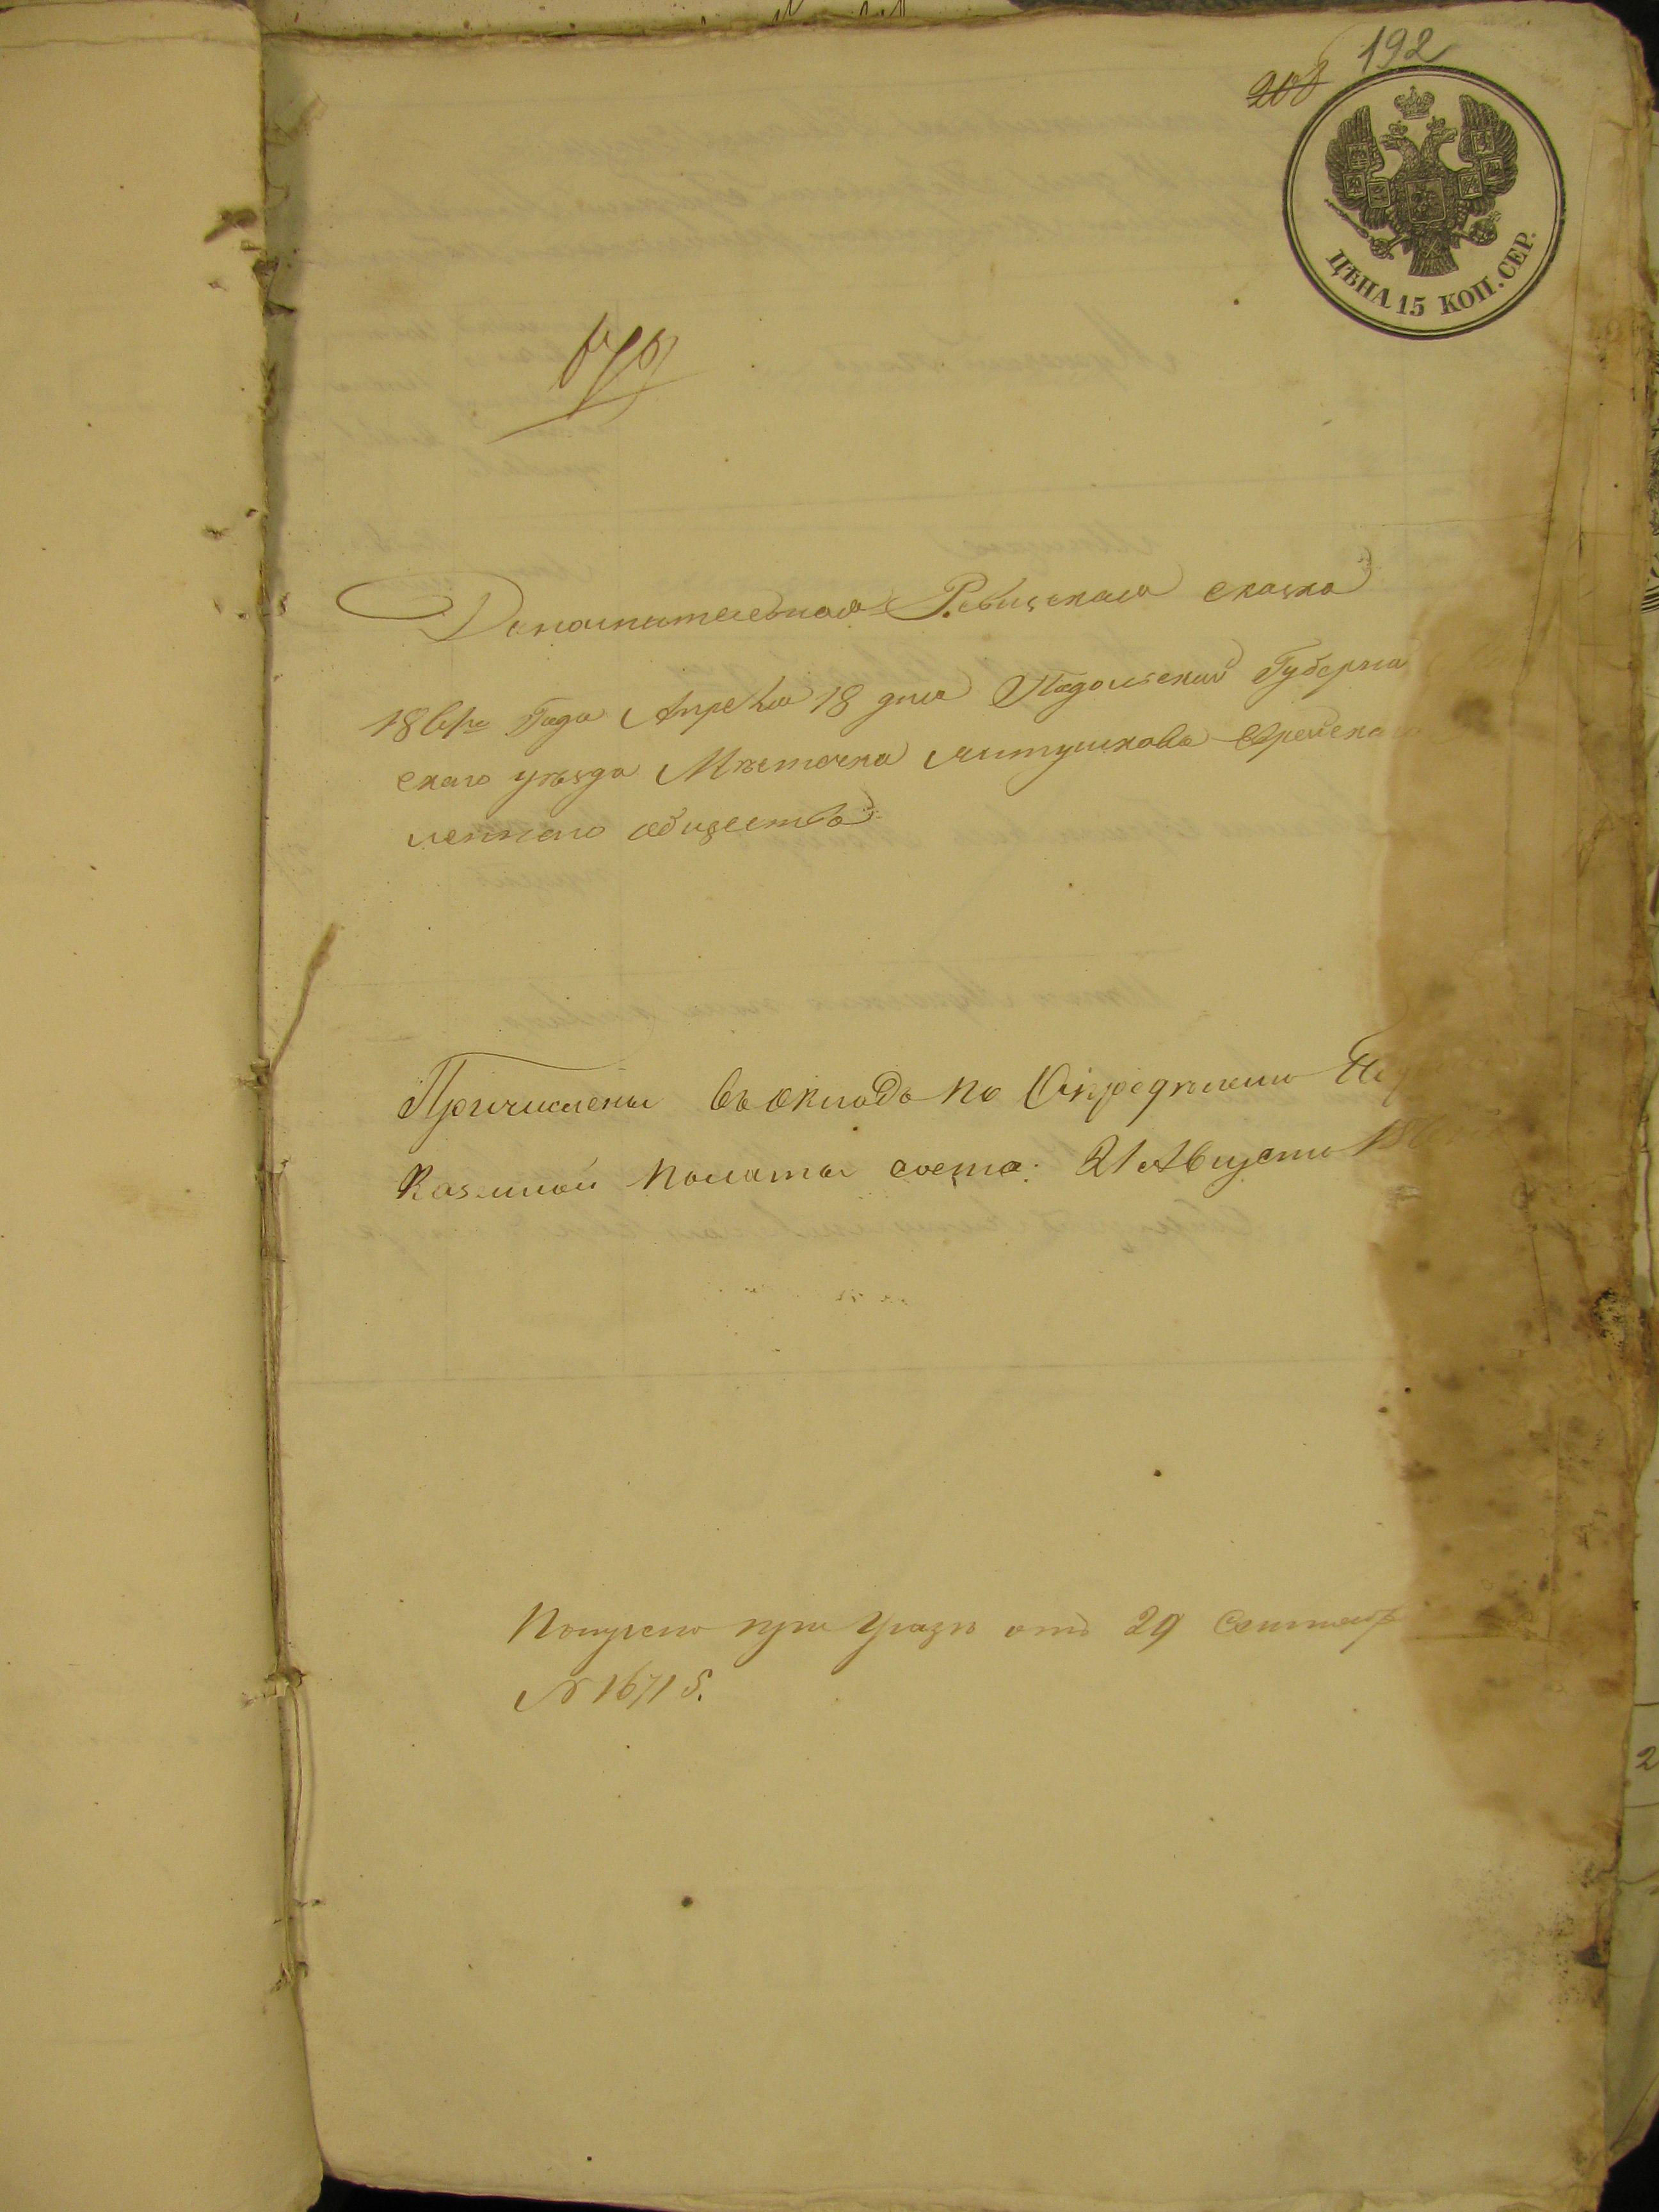 192
208
ЦѢНА 15 КОП. СЕР.
Дополнительная Ревизская сказка
1861го Года Апреля 18 дня Подольской Губерніи
скаго уѣзда Мѣстечка Янтушкова Еврейскаго
леннаго общества
Причислены въ окладъ по Опредѣленію
Казенной Палаты состо: 21 Августа 186
Получено при Указѣ отъ 29 Сентябр
№ 16715.
2